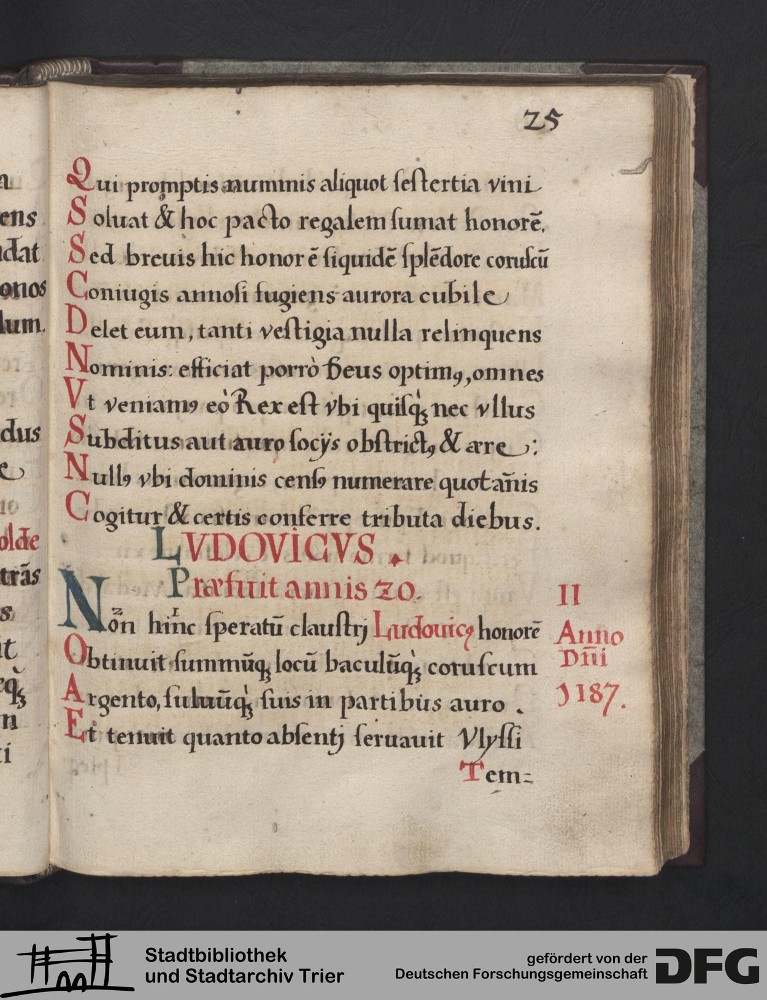 25
Qui promptis nummis aliquot sestertia vini
Soluat & hoc pacto regalem sumat honorē.
Sed brevis hic honor ē siquidē splēdore coruscū
Coniugis annosi fugiens aurora cubile
Delet eum, tanti vestigia nulla relinquens
Nominis: efficiat porrò Deus optimꝰ, omnes
Vt veniamꝰ eò Rex est vbi quisq̀ꝫ nec vllus
Subditus aut auro socijs obstrictꝰ & ære:
Nullꝰ vbi dominis censꝰ numerare quotān̄is
Cogitur & certis conferre tributa diebus.
LVDOVICVS.
Præfuit annis 20.
II
Anno
Dn̄i
1187.
Non hinc speratū claustrj Ludouicꝰ honorē
Obtinuit summūqꝫ locū baculūq̀ꝫ coruscum
Argento, fuluūq̀ꝫ suis in partibus auro.
Et tenuit quanto absentj seruauit Vlyssi
Tem=
ens
dat
onos
lum.
dus
olde
trās
Stadtbibliothek
und Stadtarchiv Trier
gefördert von der
Deutschen Forschungsgemeinschaft
DFG